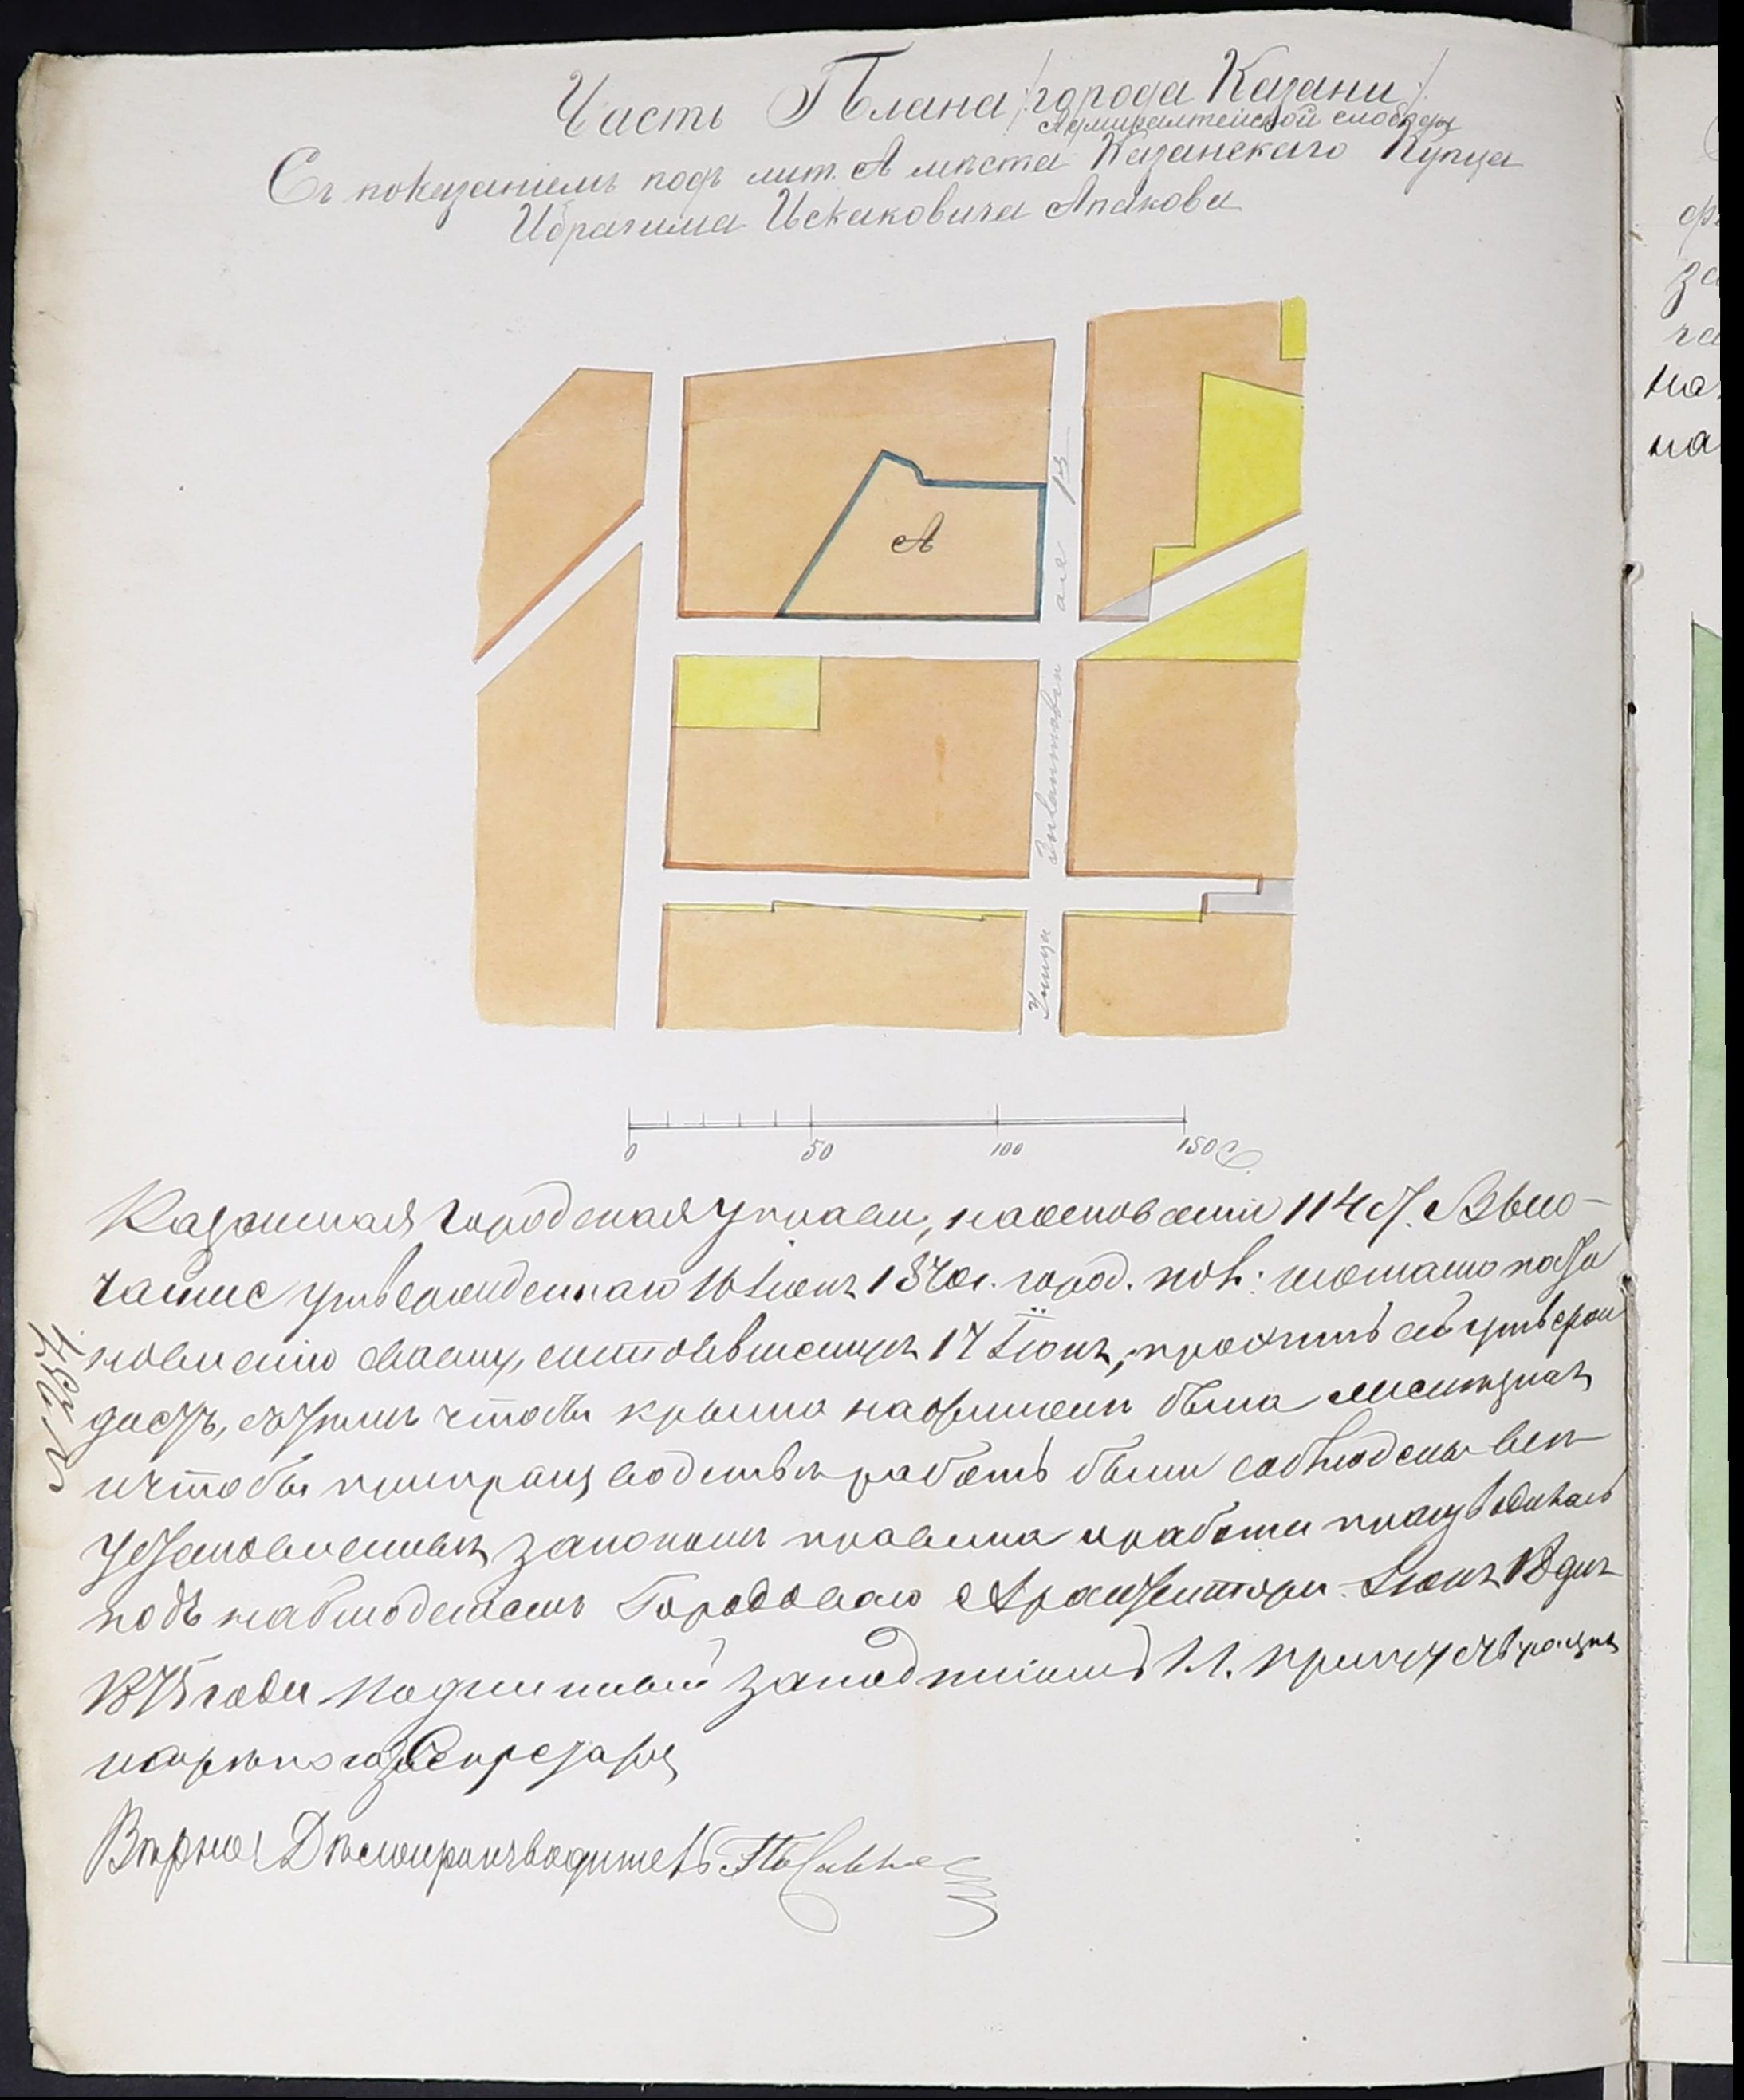 Часть Плана /города Казани/
Адмиралтейской слободы
Съ показаніемъ подъ лит. А мѣста Казанскаго Купца
Ибрагима Исхаковича Апакова
А
Улица Зилантовская
0 50 100 150 С
№ 254.
Казанская Городская Управа, на основаніи 114 ст. Высо-
чайше утвержденнаго 16 Іюня 1870 г. город. пол:
новленію своему, состоявшемуся 17 Іюня, проэктъ сей утверж
даетъ, съ тѣмъ чтобы крыша на
и чтобы при производствѣ работъ были соблюдены всѣ
установленныя закономъ правила и работы производились
подъ наблюденіемъ Городоваго Архитектора. Іюня 18 дня
1875 года. Подлинный за подписью
Секретаря
Вѣрно: Дѣлопроизводитель